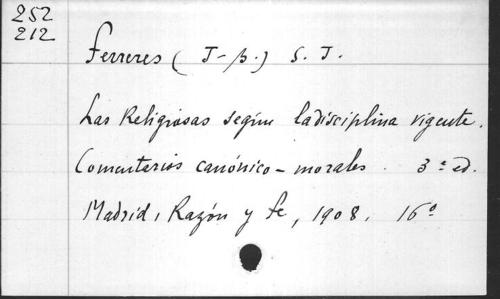 252
212
Ferreres (J-B.) S. J.
Las Religiosas según la disciplina vigente.
Comenterios canónico-morales. 3ª ed.
Madrid, Razón y fe, 1908. 16º